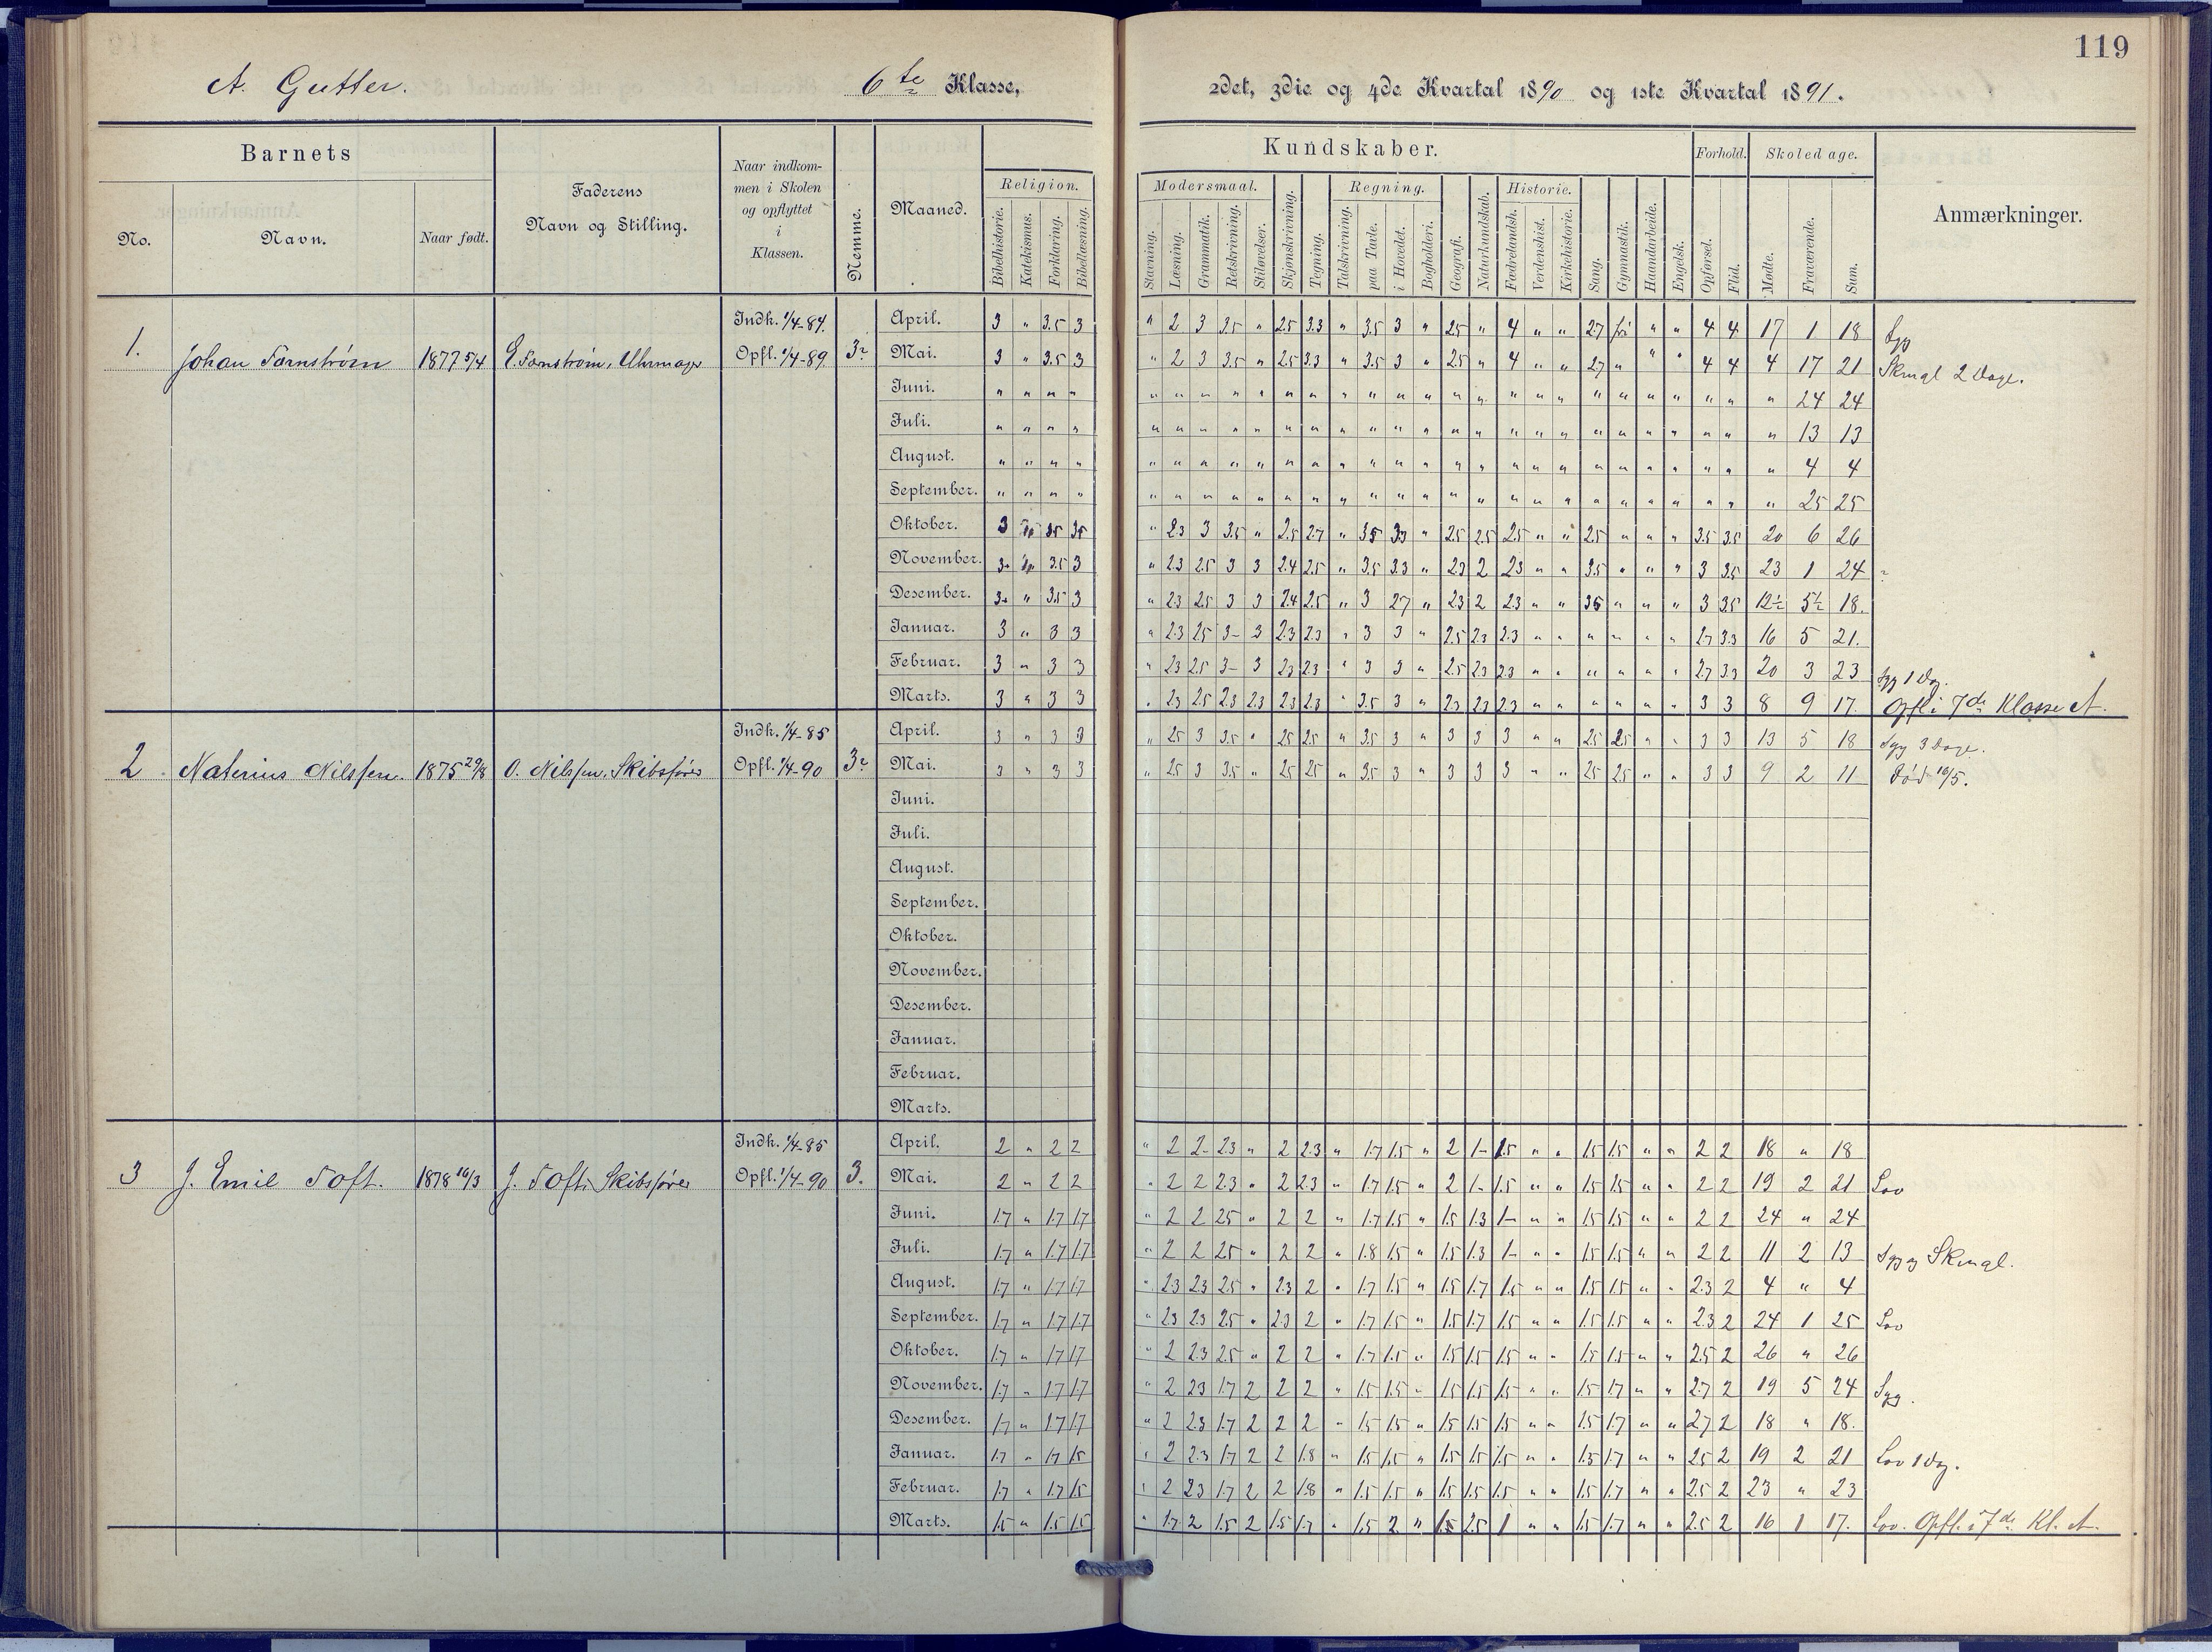 119
A. Gutter. 6te Klasse, 2det, 3die og 4de Kvartal 1890 og 1ste Kvartal 1891.
Barnets
No. Navn. Naar født.
Faderens
Navn og Stilling.
Naar indkom-
men i Skolen
og opflyttet
i
Klassen.
Nemme.
Maaned.
Kundskaber.
Religion.
Bibelhistorie. Katekismus. Forklaring. Bibellæsning.
Modersmaal.
Stavning. Læsning. Grammatik. Retskrivning. Stiløvelser. Skjønskrivning. Tegning.
Regning.
Talskrivning. paa Tavle. i Hovedet. Bogholderi. Geografi. Naturkundskab.
Historie.
Fædrelandsh. Verdenshist. Kirkehistorie. Sang. Gymnastik. Haandarbeide. Engelsk.
Forhold.
Opførsel. Flid.
Skoledage.
Mødte. Fraværende. Sum.
Anmærkninger.
1. Johan Fornstrøm 1877 5/4 E. Fornstrøm, Uhrmager
Indk. 1/4-84.
Opfl. 1/4-89.
April. 3 " 3.5 3 " 2 3 3.5 " 2.5 3.3 " 3.5 3 " 2.5 " 4 " " 2.7 fri " " 4 4 17 1 18 Syg
Mai. 3 " 3.5 3 " 2 3 3.5 " 2.5 3.3 " 3.5 3 " 2.5 " 4 " " 2.7 " " " 4 4 4 17 21 Skmgl 2 Dage.
Juni. " " " " " 24 24
Juli. " " " " " 13 13
August. " " " " " 4 4
September. " " " " " 25 25
Oktober. 3 3.5 3.5 " 2.3 3 3.5 " 2.5 2.7 " 3.5 3.3 " 2.5 2.5 2.5 " " 2.5 " " " 3.5 3.5 20 6 26
November. 3 3.5 3 " 2.3 2.5 3 3 2.4 2.5 " 3.5 3.3 " 2.3 2 2.3 " " 3.5 " " " 3 3.5 23 1 24
Desember. 3 " 3.5 3 " 2.3 2.5 3 3 2.4 2.5 " 3 2.7 " 2.3 2 2.3 " " 3.5 " " " 3 3.5 12½ 5½ 18.
Januar. 3 " 3 3 " 2.3 2.5 3- 3 2.3 2.3 " 3 3 " 2.5 2.3 2.3 " " " " " " 2.7 3.3 16 5 21.
Februar. 3 " 3 3 " 2.3 2.5 3- 3 2.3 2.3 " 3 3 " 2.5 2.3 2.3 " " " " " " 2.7 3.3 20 3 23 Syg 1 Dag.
Marts. 3 " 3 3 " 2.3 2.5 2.3 2.3 2.3 2.3 " 3.5 3 " 2.3 2.3 2.3 " " " " " " 3 3 8 9 17. Opfl. i 7de Klasse A.
2. Naterius Nilssen. 1875 29/8 O. Nilssen, Skibsfører
Indk. 1/4-85
Opfl. 1/4-90
April. 3 " 3 3 " 2.5 3 3.5 " 2.5 2.5 " 3.5 3 " 3 3 3 " " 2.5 2.5 " " 3 3 13 5 18 Syg 3 Dage.
Mai. 3 " 3 3 " 2.5 3 3.5 " 2.5 2.5 " 3.5 3 " 3 3 3 " " 2.5 2.5 " " 3 3 9 2 11 Død 16/5.
Juni.
Juli.
August.
September.
Oktober.
November.
Desember.
Januar.
Februar.
Marts.
3 J. Emil Toft. 1878 16/3 J. Toft, Skibsfører
Indk. 1/4-85
Opfl. 1/4-90 3.
April. 2 " 2 2 " 2 2- 2.3 " 2 2.3 " 1.7 1.5 " 2 1- 1.5 " " 1.5 1.5 " " 2 2 18 " 18
Mai. 2 " 2 2 " 2 2 2.3 " 2 2.3 " 1.7 1.5 " 2 1- 1.5 " " 1.5 1.5 " " 2 2 19 2 21 Lov
Juni. 1.7 " 1.7 1.7 " 2 2 2.5 " 2 2 " 1.7 1.5 " 1.5 1.3 1- " " 1.5 1.5 " " 2 2 24 " 24
Juli. 1.7 " 1.7 1.7 " 2 2 2.5 " 2 2 " 1.8 1.5 " 1.5 1.3 1- " " 1.5 1.5 " " 2 2 11 2 13 Syg og Skmgl.
August. 1.7 " 1.7 1.7 " 2.3 2.3 2.5 " 2.3 2 " 1.7 1.5 " 1.5 1.7 1.5 " " 1.5 1.5 " " 2.3 2 4 " 4
September. 1.7 " 1.7 1.7 " 2.3 2.3 2.5 " 2.3 2 " 1.7 1.5 " 1.5 1.7 1.5 " " 1.5 1.5 " " 2.3 2 24 1 25 Lov
Oktober. 1.7 " 1.7 1.7 " 2 2.3 2.5 " 2 2 " 1.7 1.5 " 1.5 1.5 1.5 " " 1.5 1.5 " " 2.5 2 26 " 26
November. 1.7 " 1.7 1.7 " 2 2.3 1.7 2 2 2 " 1.5 1.5 " 1.5 1.5 1.5 " " 1.5 1.7 " " 2.7 2 19 5 24 Syg.
Desember. 1.7 " 1.7 1.7 " 2 2.3 1.7 2 2 2 " 1.5 1.5 " 1.5 1.5 1.5 " " 1.5 1.7 " " 2.7 2 18 " 18.
Januar. 1.7 " 1.7 1.5 " 2 2.3 1.7 2 2 1.8 " 1.5 1.5 " 1.5 1.5 1.5 " " 1.5 1.7 " " 2.5 2 19 2 21 Lov 1 Dag.
Februar. 1.7 " 1.7 1.5 " 2 2.3 1.7 2 2 1.8 " 1.5 1.5 " 1.5 1.5 1.5 " " 1.5 1.7 " " 2.5 2 23 " 23
Marts. 1.5 " 1.5 1.5 " 1.7 2 1.5 2 1.5 1.7 " 1.5 2 " 1.5 2.5 1 " " 1.5 1.7 " " 2.5 2 16 1 17. Lov. Opfl. i 7de Kl. A.